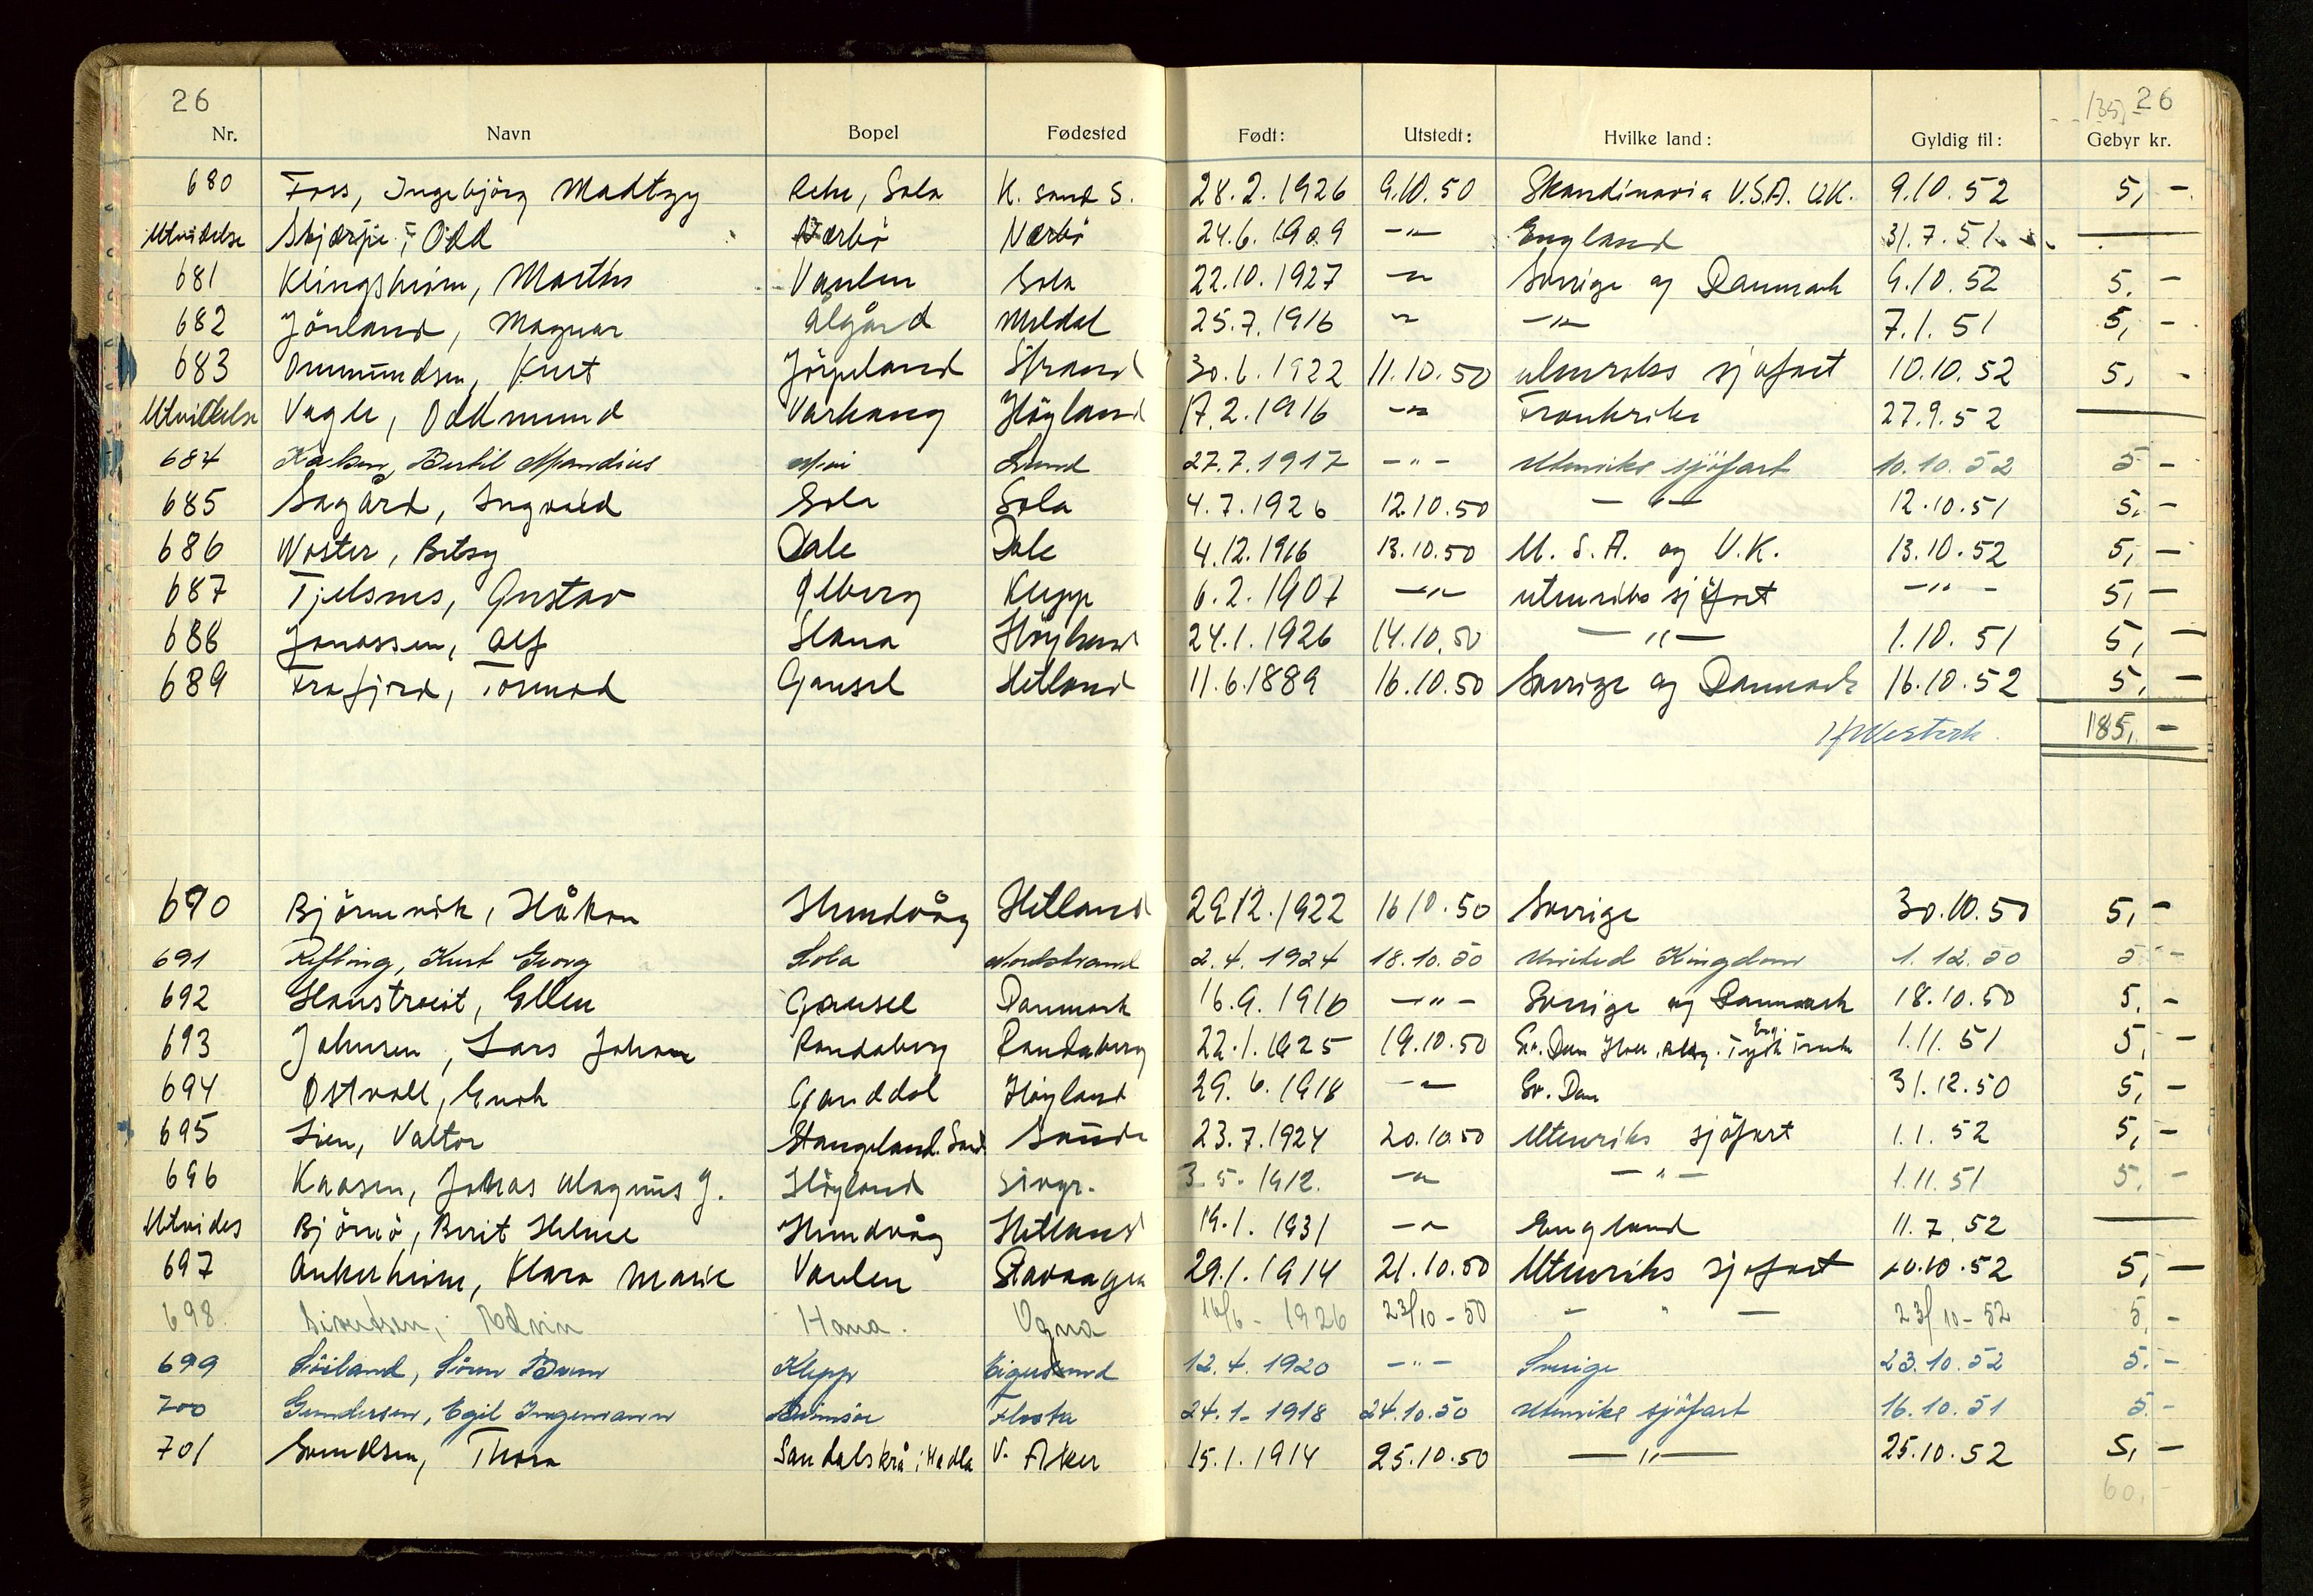 26 135,- 26
Nr. Navn Bopel Fødested Født: Utstedt: Hvilke land: Gyldig til: Gebyr kr.
680 Foss, Ingebjörg Madtzy Sola K. sand S. 28.2.1926 9.10.50 Skandinavia U.S.A. U.K. 9.10.52 5,-
Utvidelse Skjærpe, Odd Nærbö Nærbö 24.6.1909 -"- England 31.7.51 —
681 Klingsheim, Martha Vaulen Sola 22.10.1927 -"- Sverige og Danmark 9.10.52 5,-
682 Jönland, Magnar Ålgård Meldal 25.7.1916 -"- -"- 7.1.51 5,-
683 Ommundsen, Kurt Jörpeland Strand 30.6.1922 11.10.50 utenriks sjøfart 10.10.52 5,-
Utvidelse Vagle, Oddmund Varhaug Höyland 17.2.1916 -"- Frankrike 27.9.52 —
684 Bertil Mandius Moi Lund 27.7.1917 -"- Utenriks sjöfart 10.10.52 5-
685 Sagård, Ingvald Sola Sola 4.7.1926 12.10.50 -"- 12.10.51 5,-
686 Woster, Betsy Dale Dale 4.12.1916 13.10.50 U.S.A. og U.K. 13.10.52 5,-
687 Tjelsnes, Gustav Ölberg Klepp 6.2.1907 -"- utenriks sjöfart -"- 5,-
688 Jonassen, Alf Hana Höyland 24.1.1926 14.10.50 -"- 1.10.51 5,-
689 Frafjord, Tormod Gausel Hetland 11.6.1889 16.10.50 Sverige og Danmark 16.10.52 5,-
185,-
690 Björnevik, Håkon Hundvåg Hetland 29.12.1922 16.10.50 Sverige 30.10.50 5,-
691 Refling, Kurt Georg Sola Nordstrand 2.4.1924 18.10.50 United Kingdom 1.12.50 5-
692 Hanstveit, Ellen Gausel Danmark 16.9.1916 -"- Sverige og Danmark 18.10.50 5,-
693 Johnsen, Lars Johan Randaberg Randaberg 22.1.1925 19.10.50 Sv. Dan Holl. Belg. Tysk Eng. Frank 1.11.51 5,-
694 Østvoll, Enok Ganddal Höyland 29.6.1918 -"- Sv. Dan 31.12.50 5,-
695 Lien, Valtor Stangeland. Sand. Sauda 23.7.1924 20.10.50 Utenriks sjöfart 1.1.52 5,-
696 Kaasen, Johas Magnus G. Höyland Stvgr. 3.5.1912. -"- -"- 1.11.51 5,-
Utvides Björnö, Berit Helene Hundvåg Hetland 19.1.1931 -"- England 11.7.52 —
697 Ankerheim, Klara Marie Vaulen Stavanger 29.1.1914 21.10.50 Utenriks sjøfart 20.10.52 5,-
698. Sivertsen, Edvin Hana. Ogna 16/6-1926 23/10-50 - " - 23/10-52 5,-
699 Söiland, Sören Klepp Eigersund 12.4.1920 -"- Sverige 23.10.52 5.-
700 Gundersen, Egil Ingemann Flosta 24.1-1918 24.10.50 Utenriks sjöfart 16.10.51 5.-
701 Svendsen, Thora Sandalskrå i Madla V. Aker 15.1.1914 25.10.50 -"- 25.10.52 5,-
60,-